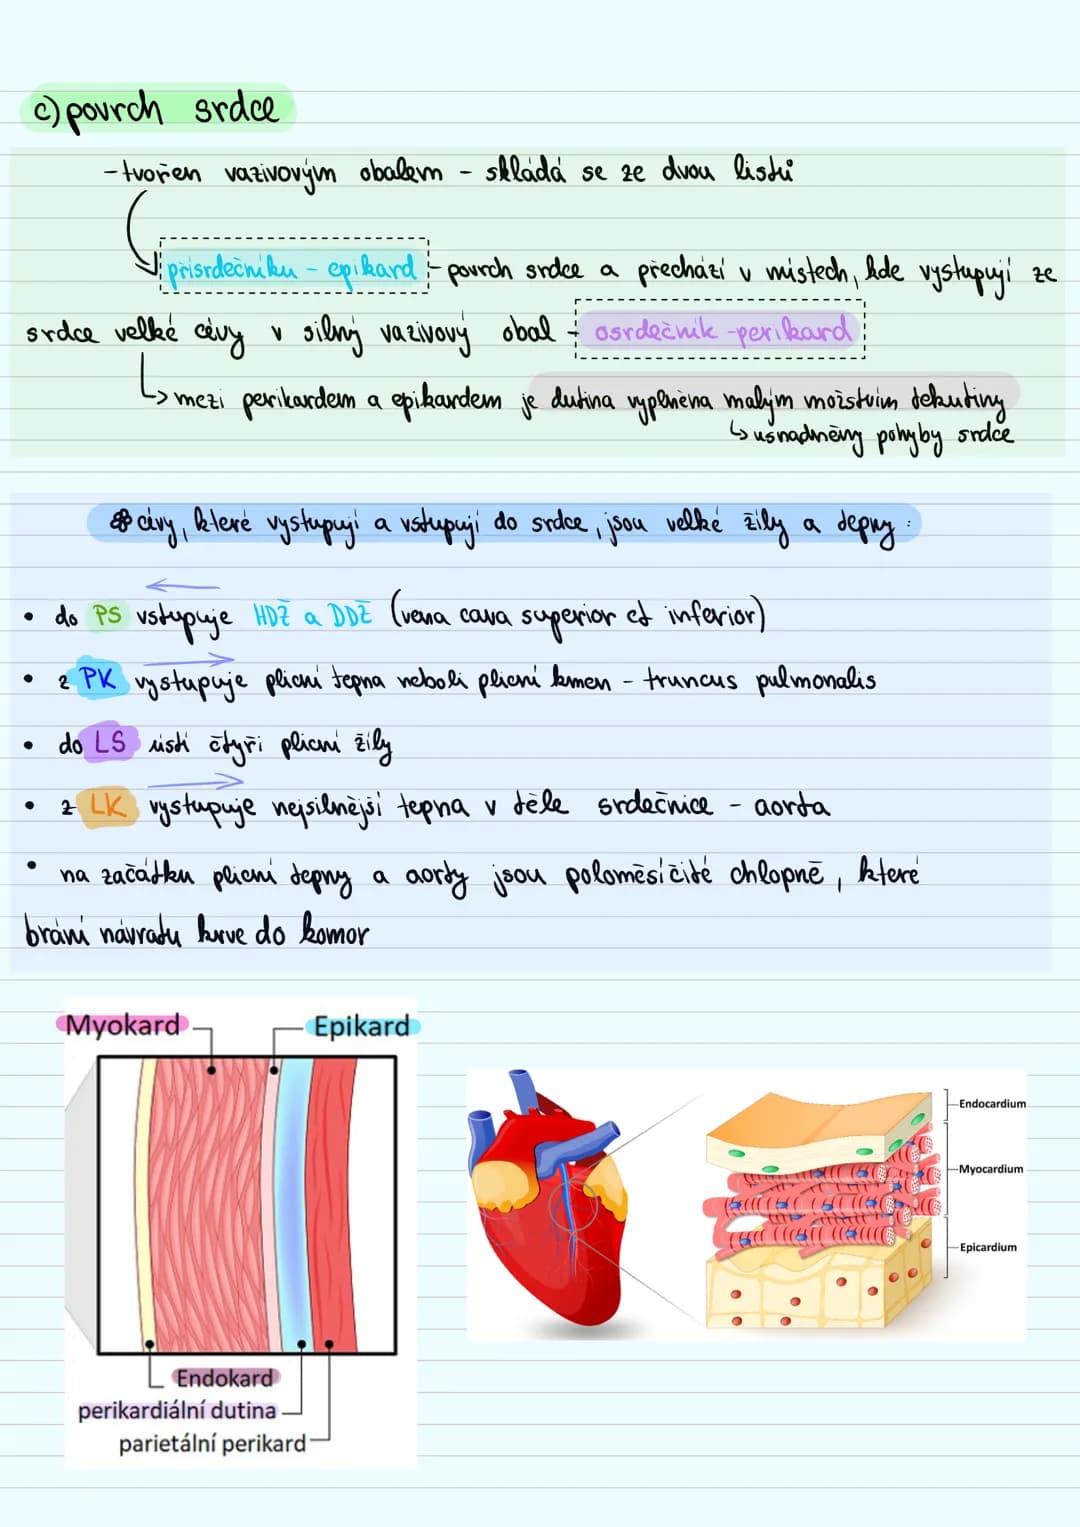 c) povrch srdce
- tvořen vazivovým obalem - skládá se ze dvou listů
přísrdečníku - epikard - povrch srdce a přechází v místech, kde vystupují ze
srdce velké cévy v silný vazivový obal - osrdečník - perikard
↳ mezi perikardem a epikardem je dutina vyplněna malým možstvím tekutiny
↳ usnadněny pohyby srdce
cévy, které vystupují a vstupují do srdce, jsou velké žíly a tepny :
• do PS vstupuje HDŽ a DDŽ (vena cava superior et inferior)
• z PK vystupuje plicní tepna neboli plicní kmen - truncus pulmonalis
• do LS ústí čtyři plicní žíly
• z LK vystupuje nejsilnější tepna v těle srdečnice - aorta
• na začátku plicní tepny a aorty jsou poloměsíčité chlopně, které
brání návratu krve do komor
Myokard
Epikard
Endokard
perikardiální dutina
parietální perikard
Endocardium
Myocardium
Epicardium